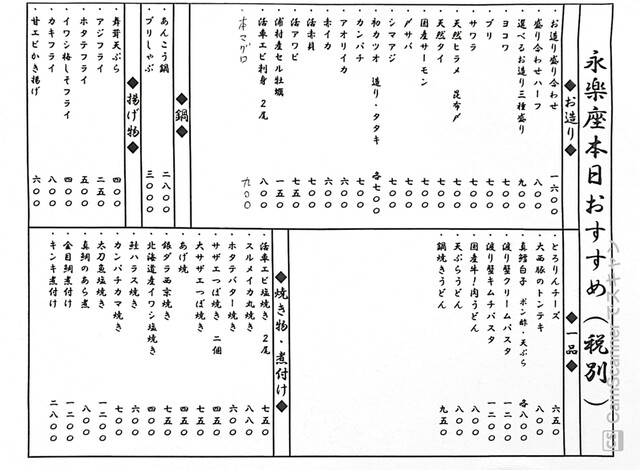 永楽座本日おすすめ(税別)
◆お造り◆
お造り盛り合わせ 一六〇〇
盛り合わせハーフ 八〇〇
選べるお造り三種盛り 九〇〇
ヨコワ 七〇〇
ブリ 七〇〇
サワラ 七〇〇
天然ヒラメ 昆布〆 七〇〇
天然タイ 七〇〇
国産サーモン 七〇〇
〆サバ 七〇〇
シマアジ 七〇〇
初カツオ 造り・タタキ 各七〇〇
カンパチ 七〇〇
アオリイカ 六〇〇
赤イカ 六〇〇
活赤貝 七〇〇
活アワビ 七五〇
浦村産セル牡蠣 一五〇
活車エビ刺身 2尾 八〇〇
本マグロ 九〇〇
◆鍋◆
あんこう鍋 二八〇〇
ブリしゃぶ 三〇〇〇
◆揚げ物◆
舞茸天ぷら 四〇〇
アジフライ 二五〇
ホタテフライ 五〇〇
イワシ梅しそフライ 四〇〇
カキフライ 八〇〇
甘エビかき揚げ 六〇〇
◆一品◆
とろりんチーズ 六五〇
大西豚のトンテキ 八〇〇
真鱈白子 ポン酢・天ぷら 各八〇〇
渡り蟹クリームパスタ 一二〇〇
渡り蟹キムチパスタ 一二〇〇
国産牛!肉うどん 八〇〇
天ぷらうどん 八〇〇
鍋焼きうどん 九五〇
◆焼き物・煮付け◆
活車エビ塩焼き 2尾 七五〇
スルメイカ丸焼き 八〇〇
ホタテバター焼き 六〇〇
サザエつぼ焼き 二個 六〇〇
大サザエつぼ焼き 七五〇
あげ焼 四五〇
銀ダラ西京焼き 七五〇
北海道産イワシ塩焼き 四〇〇
鮭ハラス焼き 五〇〇
カンパチカマ焼き 七〇〇
太刀魚塩焼き 一二〇〇
真鯛のあら煮 八〇〇
金目鯛煮付け 一二〇〇
キンキ煮付け 二八〇〇
CS CamScanner でスキャン